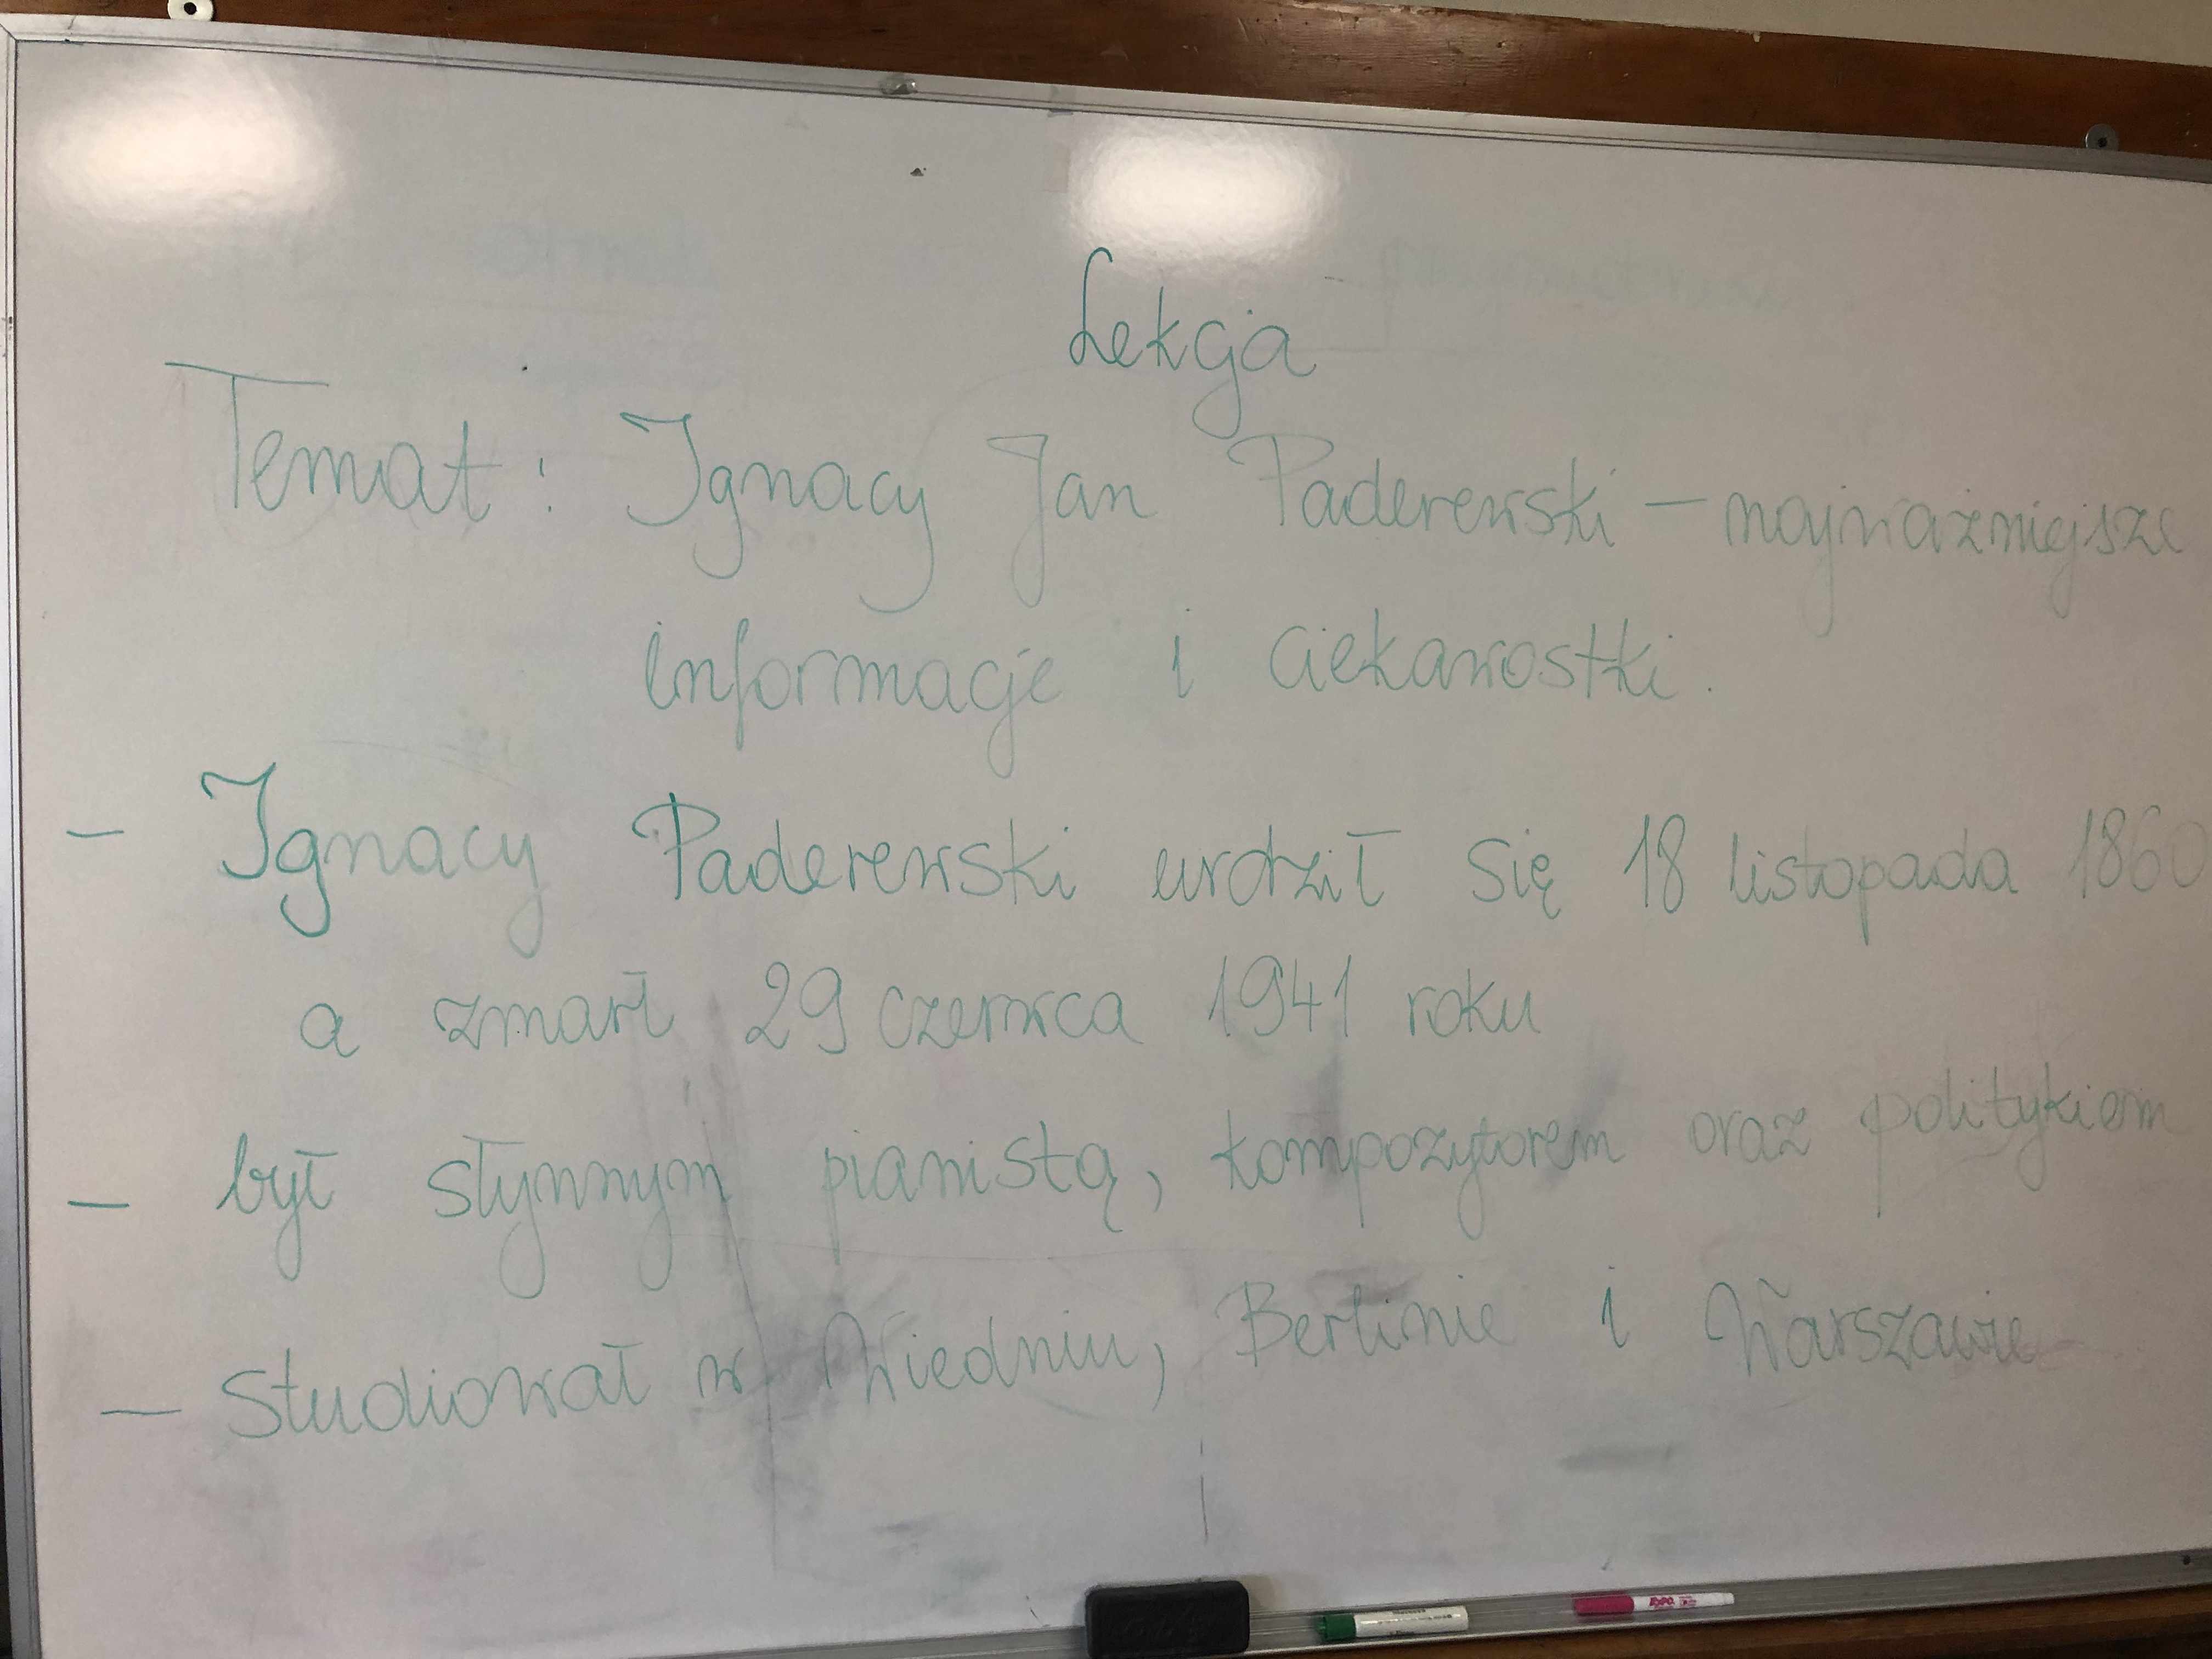 Lekcja
Temat: Ignacy Jan Paderewski – najważniejsze
informacje i ciekawostki.
– Ignacy Paderewski urodził się 18 listopada 1860
a zmarł 29 czerwca 1941 roku
– był słynnym pianistą, kompozytorem oraz politykiem
– Studiował w Wiedniu, Berlinie i Warszawie
EXPO